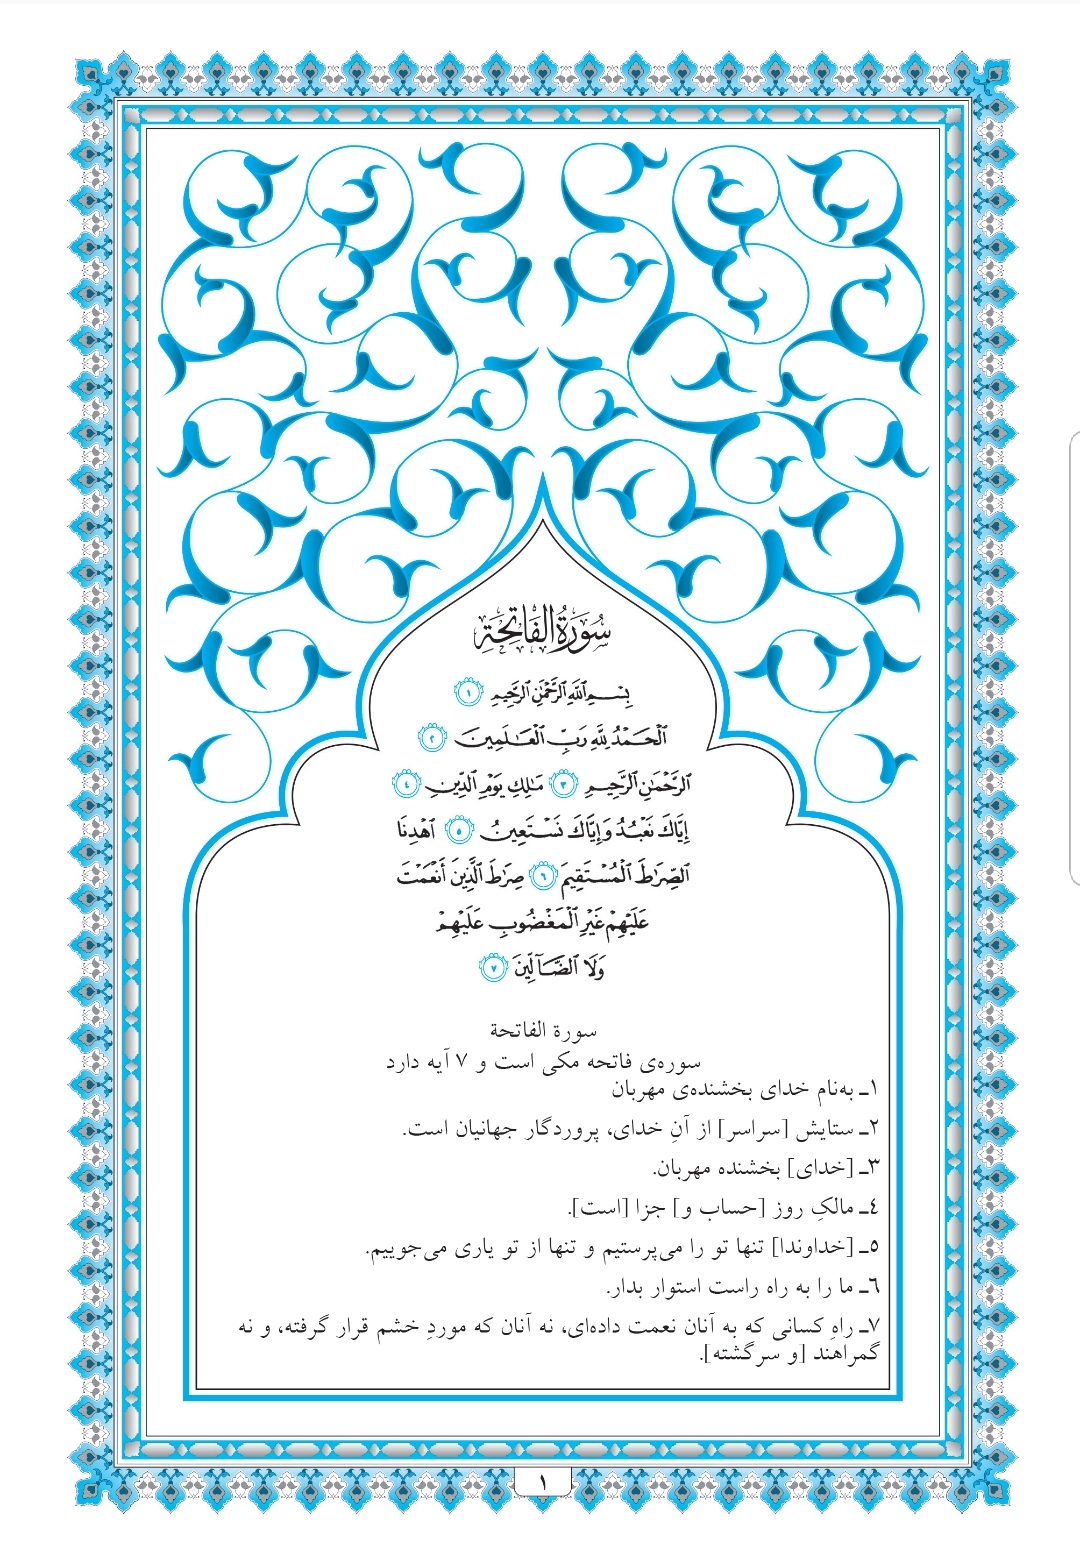 سُورَةُ الفَاتِحَةِ
بِسْمِ ٱللَّهِ ٱلرَّحْمَٰنِ ٱلرَّحِيمِ ١
ٱلْحَمْدُ لِلَّهِ رَبِّ ٱلْعَٰلَمِينَ ٢
ٱلرَّحْمَٰنِ ٱلرَّحِيمِ ٣ مَٰلِكِ يَوْمِ ٱلدِّينِ ٤
إِيَّاكَ نَعْبُدُ وَإِيَّاكَ نَسْتَعِينُ ٥ ٱهْدِنَا
ٱلصِّرَٰطَ ٱلْمُسْتَقِيمَ ٦ صِرَٰطَ ٱلَّذِينَ أَنْعَمْتَ
عَلَيْهِمْ غَيْرِ ٱلْمَغْضُوبِ عَلَيْهِمْ
وَلَا ٱلضَّآلِّينَ ٧
سورة الفاتحة
سوره‌ی فاتحه مکی است و ٧ آیه دارد
١ـ به‌نام خدای بخشنده‌ی مهربان
٢ـ ستایش [سراسر] از آنِ خدای، پروردگار جهانیان است.
٣ـ [خدای] بخشنده مهربان.
٤ـ مالکِ روز [حساب و] جزا [است].
٥ـ [خداوندا] تنها تو را می‌پرستیم و تنها از تو یاری می‌جوییم.
٦ـ ما را به راه راست استوار بدار.
٧ـ راهِ کسانی که به آنان نعمت داده‌ای، نه آنان که موردِ خشم قرار گرفته، و نه
گمراهند [و سرگشته].
١